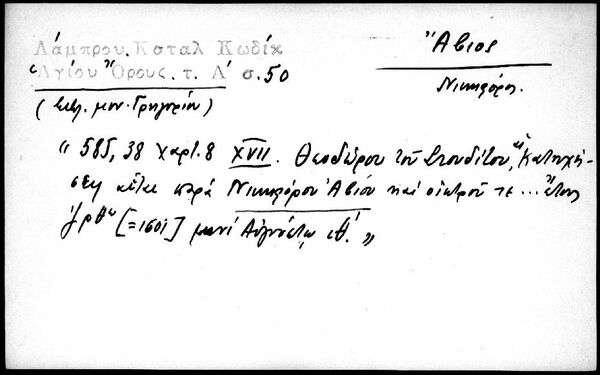 Λάμπρου. Καταλ Κωδίκ
Ἁγίου Ὄρους. τ. Α΄ σ. 50
(Βιβλ. μον. Γρηγορίου)
Ἄβιος
Νικηφόρος.
" 585, 38 Χαρτ. 8 XVII. Θεοδώρου τοῦ Στουδίτου, "Κατηχή-
σεις αἵτε παρὰ Νικηφόρου Ἀβίου καὶ οἰκτροῦ τε ... ἔτους
͵ζρθ" [=1601] μηνὶ Αὐγούστῳ, ιθ΄. "